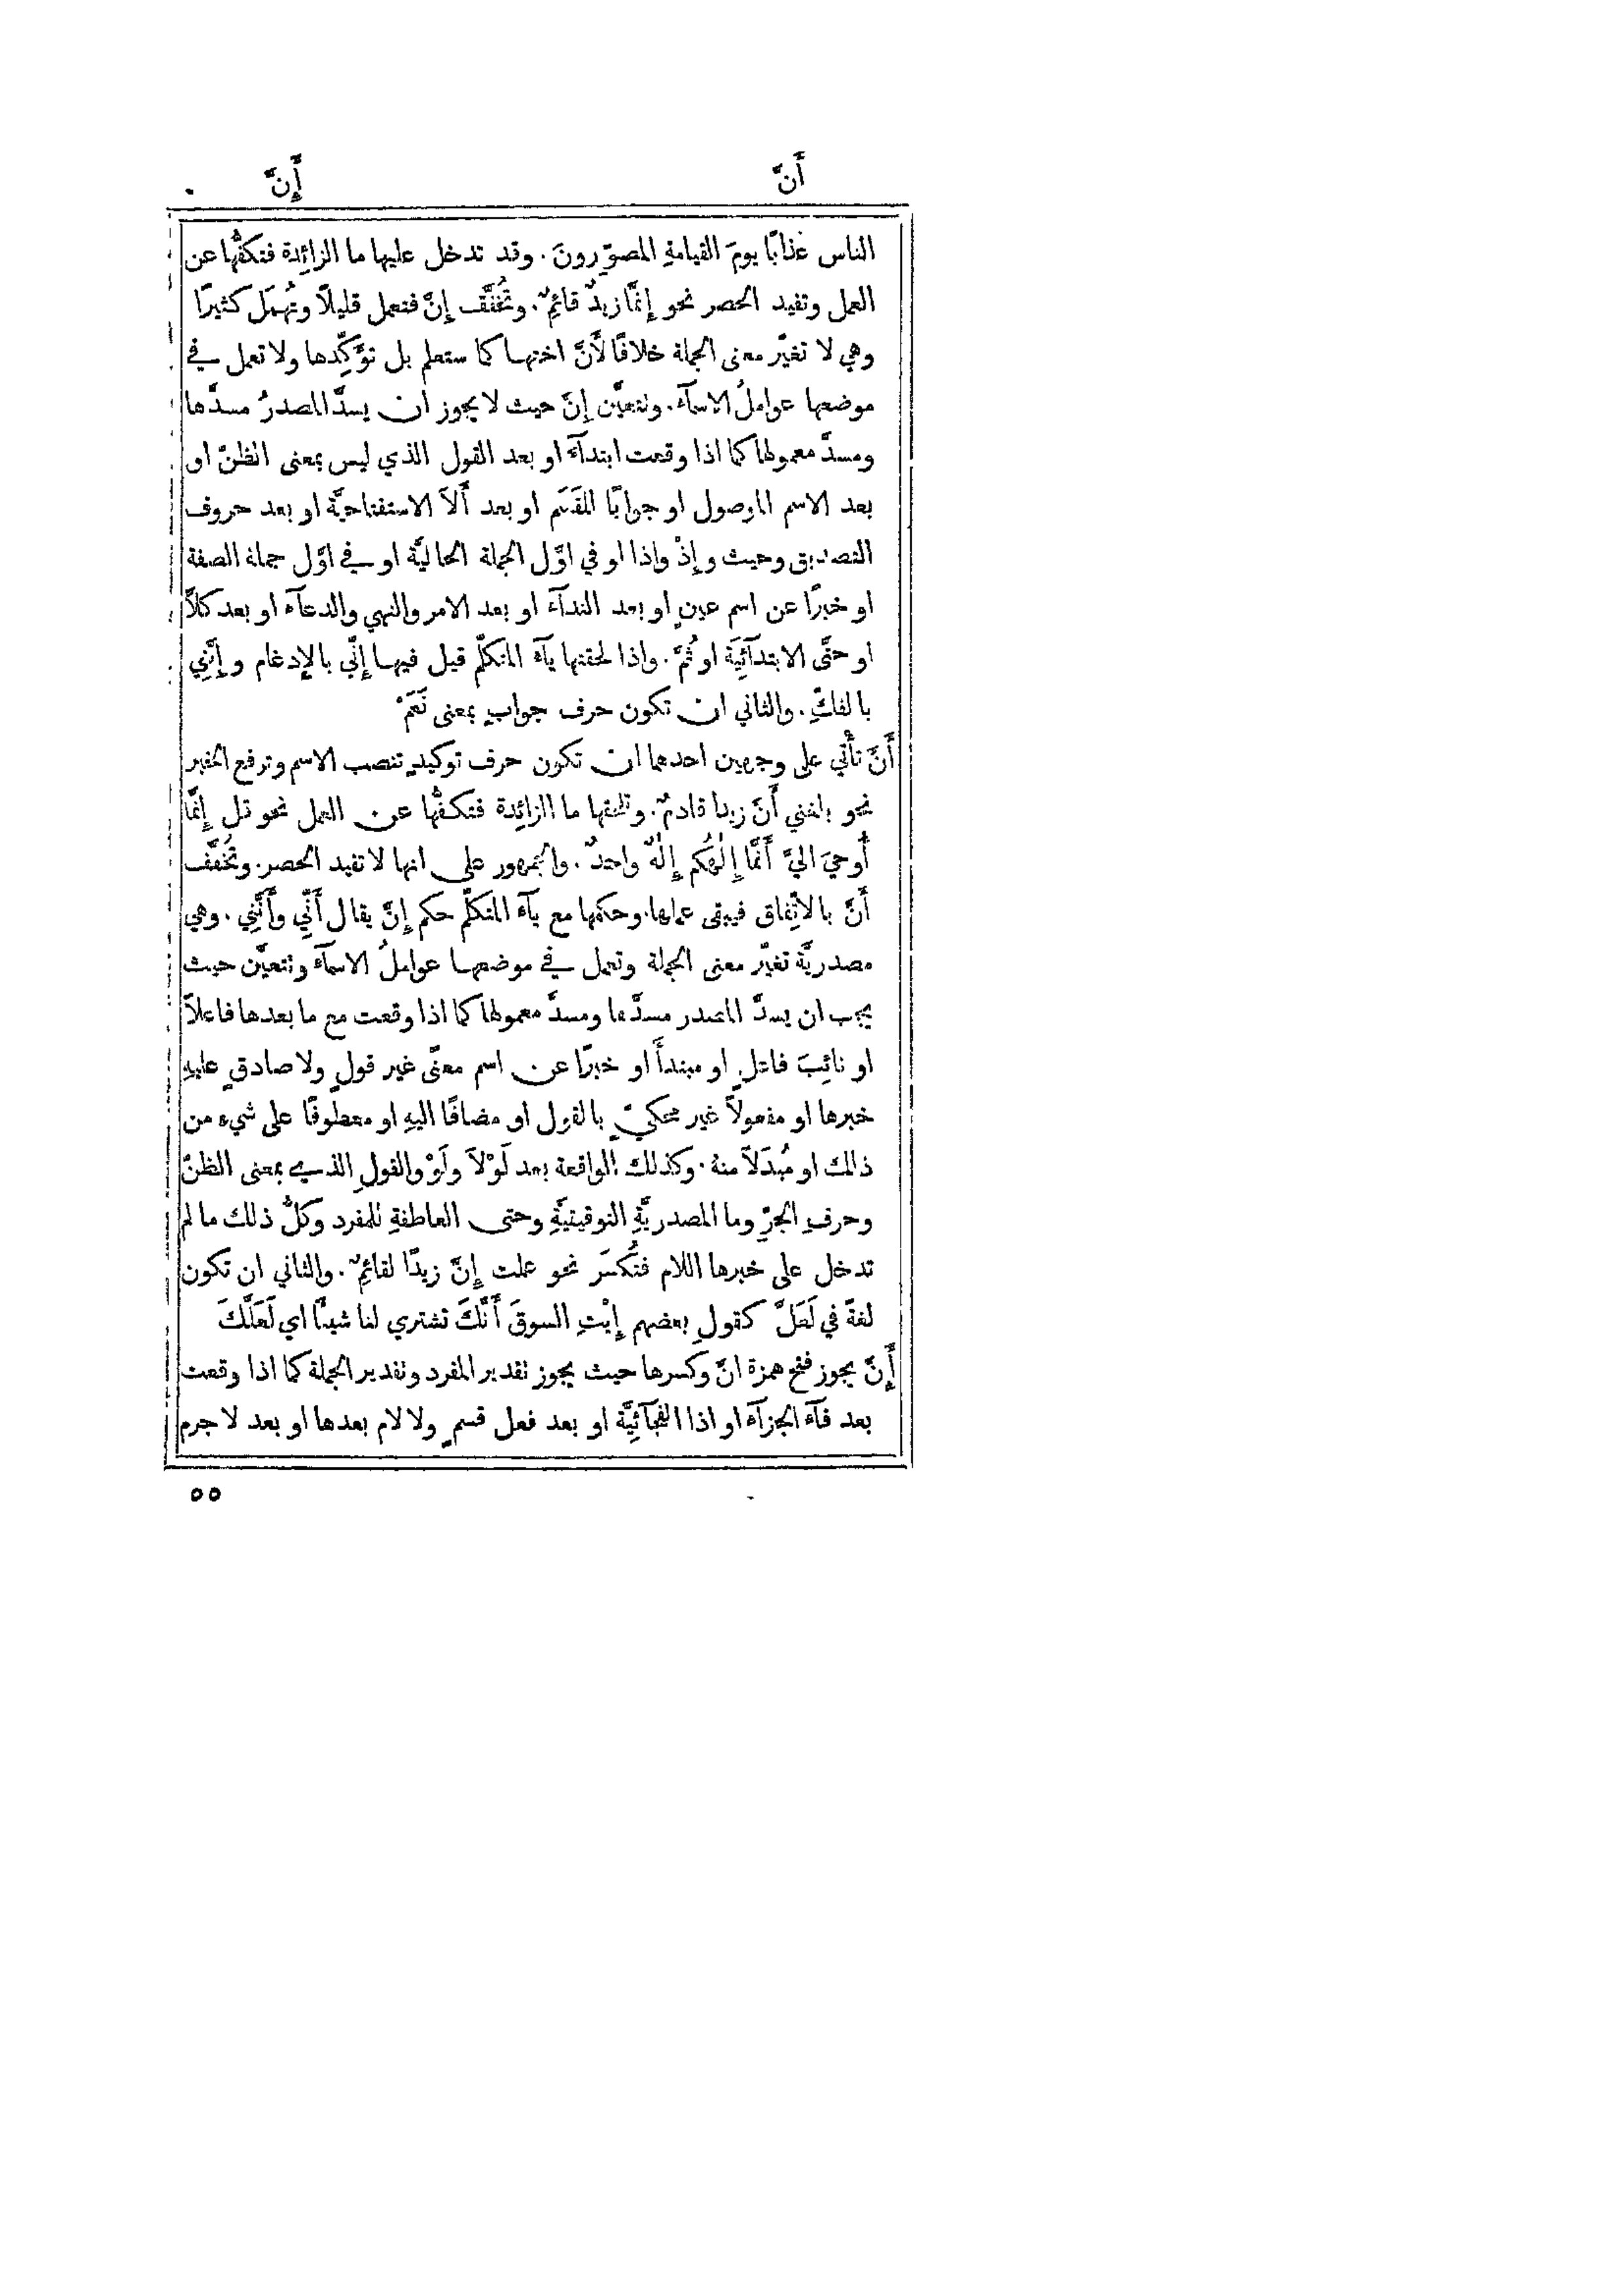 أَنَّ إَِنَّ
الناس عذابًا يومَ القيامةِ المصوّرونَ. وقد تدخل عليها ما الزائِدة فتكفُّها عن
العمل وتفيد الحصر نحو إِنَّما زيدٌ قائِمٌ. وتُخفَّف إِنَّ فتعمل قليلًا وتُهمَل كثيرًا
وهي لا تغيّر معنى الجملة خلافًا لأَنَّ اختها كما ستعلم بل تؤَكِّدها ولا تعمل في
موضعها عواملُ الاسمآء. وتتعيَّن إِنَّ حيث لا يجوز ان يسدَّ المصدرُ مسدَّها
ومسدَّ معمولها كما اذا وقعت ابتدآءً او بعد القول الذي ليس بمعنى الظنّ او
بعد الاسم الموصول او جوابًا للقَسَم او بعد أَلاَ الاستفتاحيَّة او بعد حروف
التصديق وحيث وإِذْ واذا او في اوَّل الجملة الحاليَّة او في اوَّل جملة الصفة
او خبرًا عن اسم عينٍ او بعد الندآء او بعد الامر والنهي والدعآء او بعد كلاَّ
او حتَّى الابتدآئِيَّة او ثُمَّ. واذا لحقتها يآء المتكلّم قيل فيها إِنّي بالإِدغام وإِنَّنِي
بالفكِّ. والثاني ان تكون حرف جوابٍ بمعنى نَعَمْ
أَنَّ تأْتي على وجهين احدهما ان تكون حرف توكيدٍ تنصب الاسم وترفع الخبر
نحو بلغني أَنَّ زيدا قادمٌ. وتلحقها ما الزائِدة فتكفُّها عن العمل نحو قل إِنَّما
أُوحيَ اليَّ أَنَّما إِلٰهُكم إِلٰهٌ واحدٌ. والجمهور على انها لا تفيد الحصر. وتُخفَّف
أَنَّ بالاتّفاق فيبقى عملها. وحكمها مع يآء المتكلّم حكم إِنَّ يقال أَنّي وأَنَّنِي. وهي
مصدريَّة تغيّر معنى الجملة وتعمل في موضعها عواملُ الاسمآء وتتعيَّن حيث
يجب ان يسدَّ المصدر مسدَّها ومسدَّ معمولها كما اذا وقعت مع ما بعدها فاعلاً
او نائِبَ فاعلٍ او مبتدأً او خبرًا عن اسم معنًى غير قولٍ ولا صادقٍ عليهِ
خبرها او مفعولاً غير محكيٍّ بالقول او مضافًا اليهِ او معطوفًا على شيءٍ من
ذلك او مُبدَلاً منهُ. وكذلك الواقعة بعد لَوْلاَ ولَوْ والقولِ الذي بمعنى الظنّ
وحرفِ الجرّ وما المصدريَّةِ التوقيتيَّةِ وحتى العاطفةِ للمفرد وكلُّ ذلك ما لم
تدخل على خبرها اللام فتُكسَر نحو علمت إِنَّ زيدًا لقائِمٌ. والثاني ان تكون
لغةً في لَعَلَّ كقولِ بعضهم إِيْتِ السوقَ أَنَّكَ تشتري لنا شيئًا اي لَعَلَّكَ
إَِنَّ يجوز فتح همزة انَّ وكسرها حيث يجوز تقدير المفرد وتقدير الجملة كما اذا وقعت
بعد فآء الجزآء او اذا الفجآئِيَّة او بعد فعل قسمٍ ولا لام بعدها او بعد لا جرم
٥٥